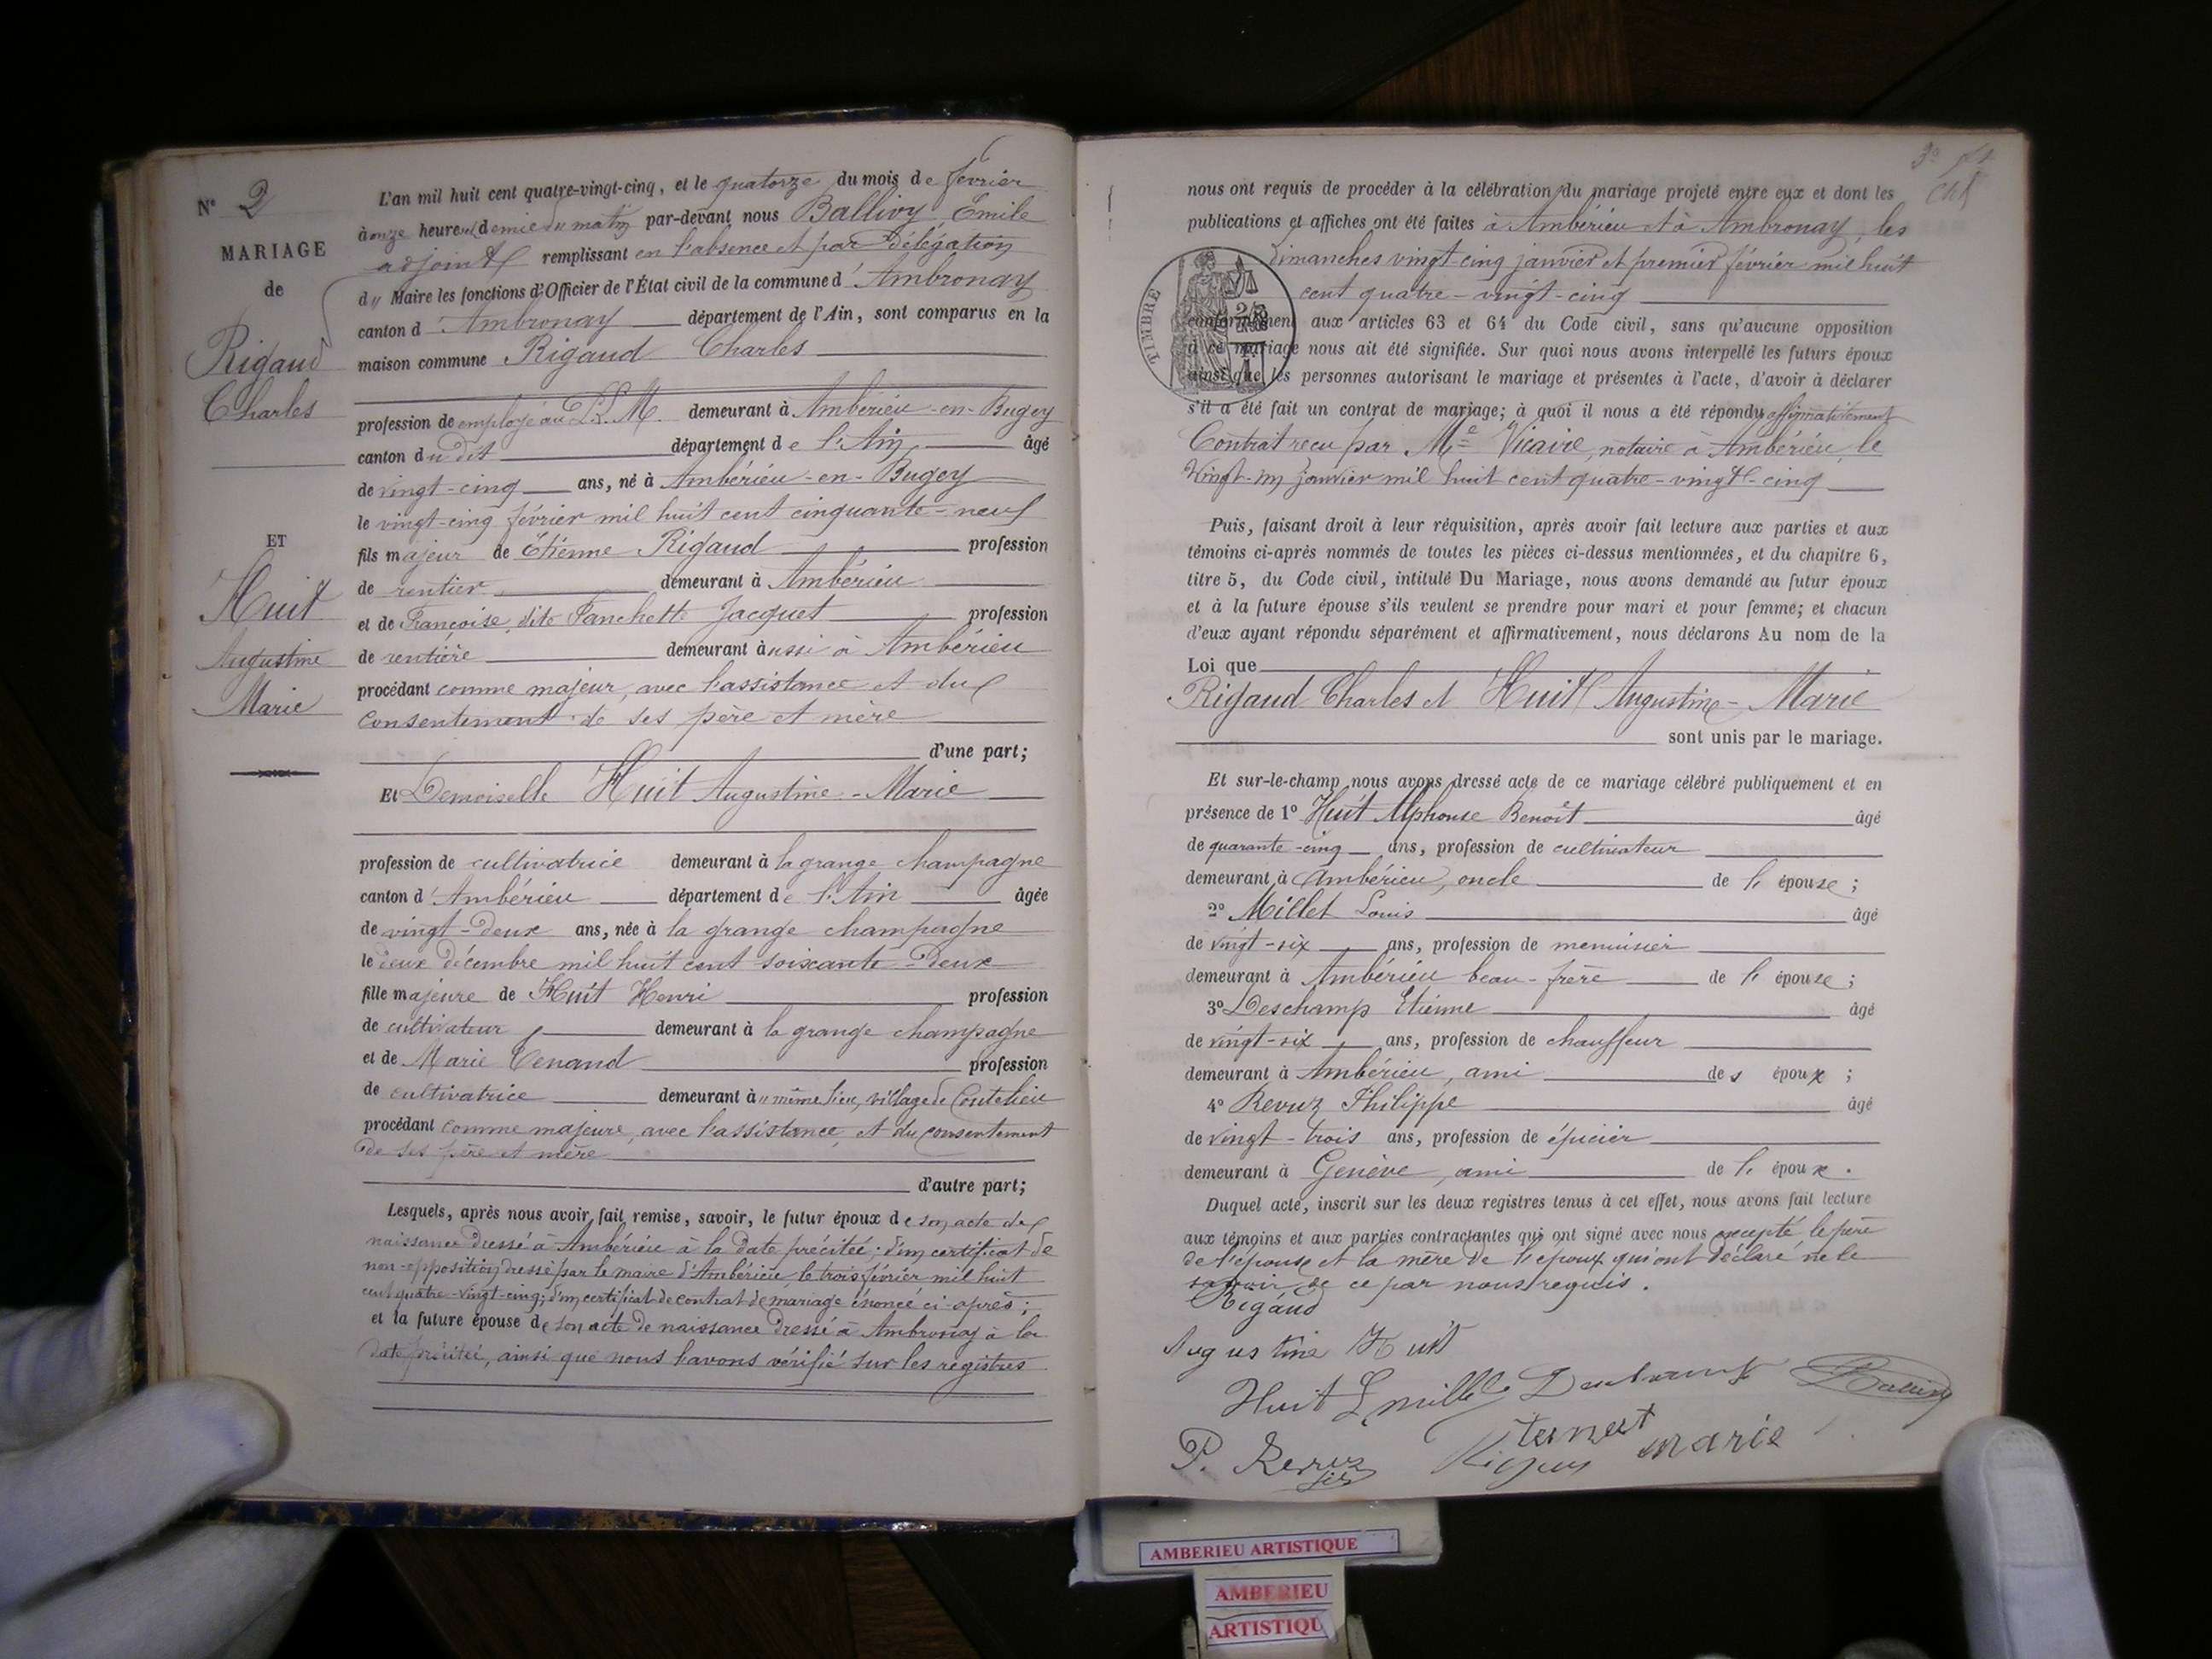 N° 2
MARIAGE
de
Rigaud
Charles
ET
Huit
Augustine
Marie
L'an mil huit cent quatre-vingt-cinq, et le quatorze du mois de février
à onze heures et demie du matin par-devant nous Ballivy Emile
adjoint remplissant en l'absence et par délégation
du Maire les fonctions d'Officier de l'État civil de la commune d'Ambronay
canton d'Ambronay département de l'Ain, sont comparus en la
maison commune Rigaud Charles
profession de employé au P.L.M. demeurant à Ambérieu-en-Bugey
canton du dit département de l'Ain âgé
de vingt-cinq ans, né à Ambérieu-en-Bugey
le vingt-cinq février mil huit cent cinquante-neuf
fils majeur de Etienne Rigaud profession
de rentier demeurant à Ambérieu
et de Françoise, dite Fanchette Jacquet profession
de rentière demeurant aussi à Ambérieu
procédant comme majeur, avec l'assistance et du
consentement de ses père et mère
d'une part;
Et Demoiselle Huit Augustine-Marie
profession de cultivatrice demeurant à la grange champagne
canton d'Ambérieu département de l'Ain âgée
de vingt-deux ans, née à la grange champagne
le deux décembre mil huit cent soixante-deux
fille majeure de Huit Henri profession
de cultivateur demeurant à la grange champagne
et de Marie Tenand profession
de cultivatrice demeurant à même lieu, village de Coutelieu
procédant comme majeure, avec l'assistance et du consentement
de ses père et mère
d'autre part;
Lesquels, après nous avoir fait remise, savoir, le futur époux de son acte de
naissance dressé à Ambérieu à la date précitée; d'un certificat de
non-opposition dressé par le maire d'Ambérieu, le trois février mil huit
cent quatre-vingt-cinq; d'un certificat de contrat de mariage énoncé ci-après;
et la future épouse de son acte de naissance dressé à Ambronay à la
date précitée, ainsi que nous l'avons vérifié sur les registres
nous ont requis de procéder à la célébration du mariage projeté entre eux et dont les
publications et affiches ont été faites à Ambérieu et à Ambronay, les
dimanches vingt-cinq janvier et premier février mil huit
cent quatre-vingt-cinq
TIMBRE
conformément aux articles 63 et 64 du Code civil, sans qu'aucune opposition
à ce mariage nous ait été signifiée. Sur quoi nous avons interpellé les futurs époux
ainsi que les personnes autorisant le mariage et présentes à l'acte, d'avoir à déclarer
s'il a été fait un contrat de mariage; à quoi il nous a été répondu affirmativement
Contrat reçu par Me Vicaire, notaire à Ambérieu, le
vingt-un janvier mil huit cent quatre-vingt-cinq
Puis, faisant droit à leur réquisition, après avoir fait lecture aux parties et aux
témoins ci-après nommés de toutes les pièces ci-dessus mentionnées, et du chapitre 6,
titre 5, du Code civil, intitulé Du Mariage, nous avons demandé au futur époux
et à la future épouse s'ils veulent se prendre pour mari et pour femme; et chacun
d'eux ayant répondu séparément et affirmativement, nous déclarons Au nom de la
Loi que
Rigaud Charles et Huit Augustine-Marie
sont unis par le mariage.
Et sur-le-champ nous avons dressé acte de ce mariage célébré publiquement et en
présence de 1° Huit Alphonse Benoît âgé
de quarante-cinq ans, profession de cultivateur
demeurant à Ambérieu, oncle de l'épouse;
2° Millet Louis âgé
de vingt-six ans, profession de menuisier
demeurant à Ambérieu beau-frère de l'épouse;
3° Deschamp Etienne âgé
de vingt-six ans, profession de chauffeur
demeurant à Ambérieu, ami des époux;
4° Revuz Philippe âgé
de vingt-trois ans, profession de épicier
demeurant à Genève, ami de l'époux.
Duquel acte, inscrit sur les deux registres tenus à cet effet, nous avons fait lecture
aux témoins et aux parties contractantes qui ont signé avec nous excepté le père
de l'épouse et la mère de l'époux qui ont déclaré ne le
savoir de ce par nous requis.
Rigaud
Augustine Huit
Huit
P. Revuz
marie
AMBERIEU ARTISTIQUE
AMBERIEU
ARTISTIQU